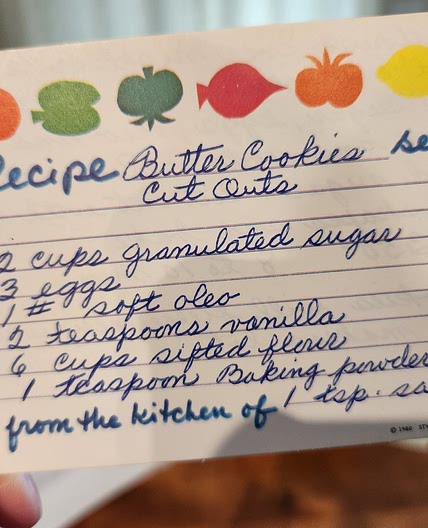 Recipe Butter Cookies se
Cut Outs
2 cups granulated sugar
3 eggs
1 # soft oleo
2 teaspoons vanilla
6 cups sifted flour
1 teaspoon Baking powder
from the kitchen of 1 tsp. sa
© 1980 ST